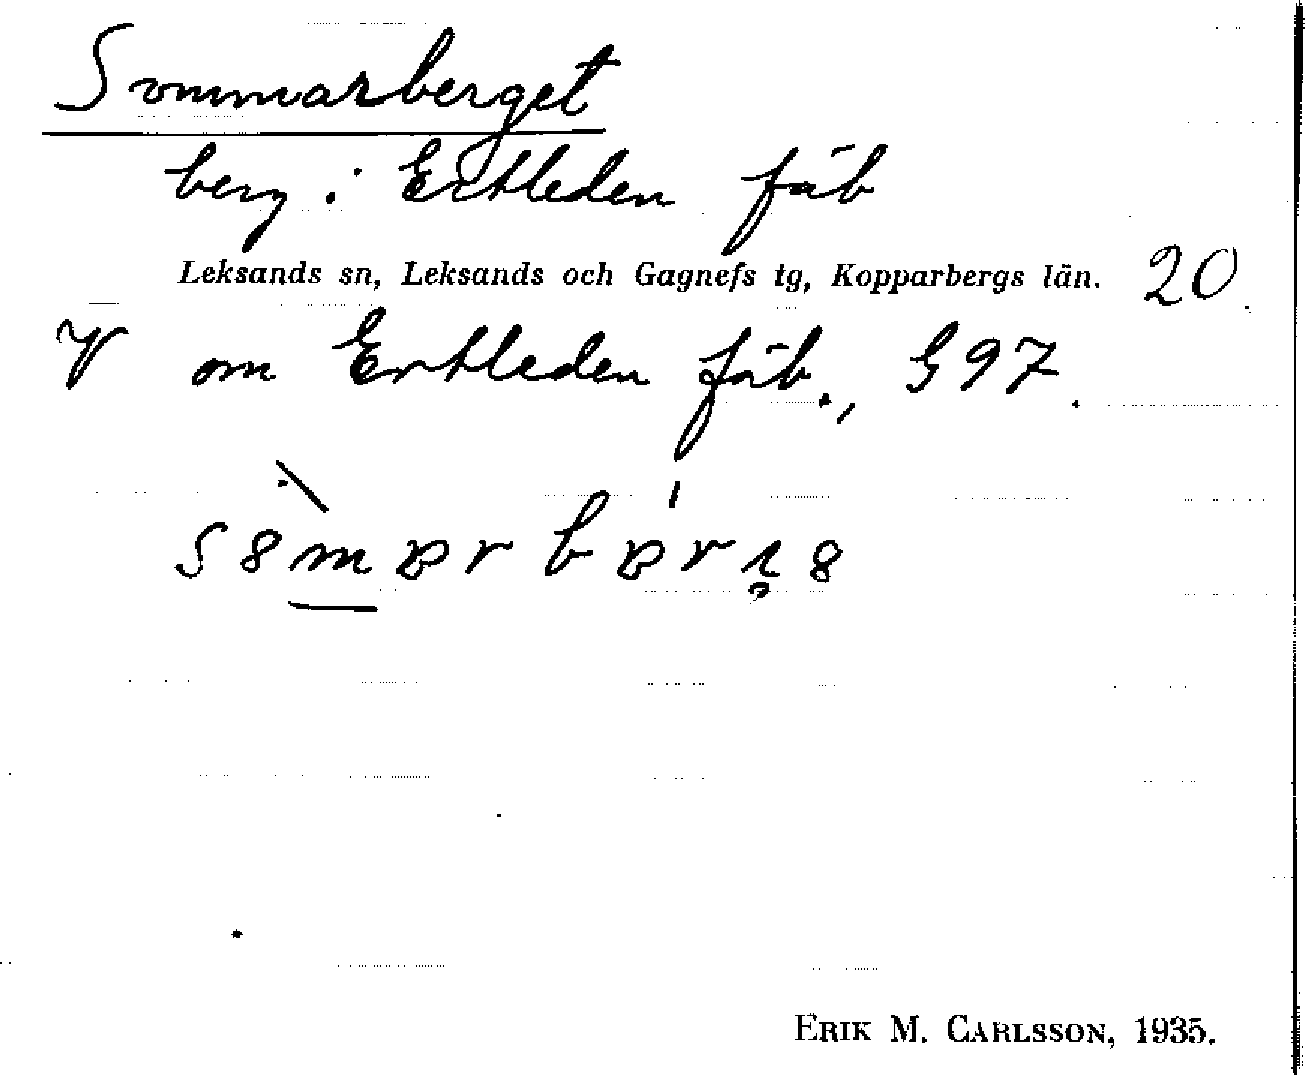 Sommarberget
berg i Ertleden fäb
Leksands sn, Leksands och Gagnefs tg, Kopparbergs län. 20
V om Ertleden fäb., G 97.
ERIK M. CARLSSON, 1935.